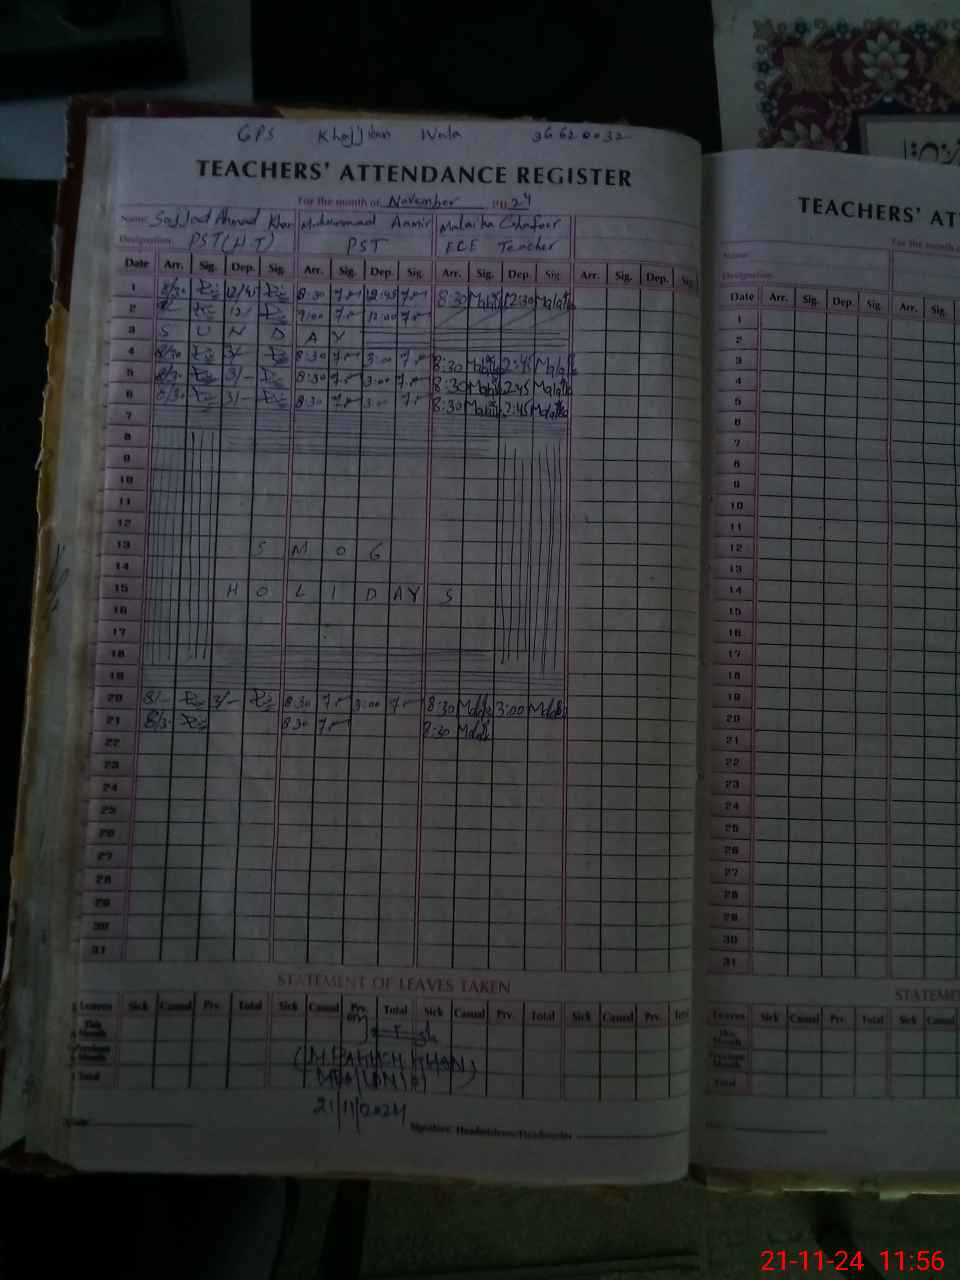 GPS Khajjian Wala 36620032
TEACHERS' ATTENDANCE REGISTER
For the month of November 2024
Name Sajjad Ahmad Khan Muhammad Aamir Malaika Ghafoor
Designation PST(H.T) PST ECE Teacher
Date Arr. Sig. Dep. Sig. Arr. Sig. Dep. Sig. Arr. Sig. Dep. Sig. Arr. Sig. Dep. Sig.
1 8/30 12/45 8:30 12:45 8:30 12:30
2 9:00 12:00
3 S U N D A Y
4 8/30 3/- 8:30 3:00 8:30 2:45
5 8/30 3/- 8:30 3:00 8:30 2:45
6 8/30 3/- 8:30 3:00 8:30 2:45
7
8
9
10
11
12
13 S M O G
14
15 H O L I D A Y S
16
17
18
19
20 8/- 3/- 8:30 3:00 8:30 3:00
21 8/30 8:30 8:30
22
23
24
25
26
27
28
29
30
31
STATEMENT OF LEAVES TAKEN
Leaves Sick Casual Prv. Total Sick Casual Prv. Total Sick Casual Prv. Total Sick Casual Prv. Total
This Month
Previous Month
Total
21/11/2024
Signature Headmistress/Headmaster
TEACHERS' AT
For the month o
Name:
Designation:
Date Arr. Sig. Dep. Sig. Arr. Sig.
1
2
3
4
5
6
7
8
9
10
11
12
13
14
15
16
17
18
19
20
21
22
23
24
25
26
27
28
29
30
31
STATEME
Leaves Sick Casual Prv. Total Sick Casual
This Month
Previous Month
Total
21-11-24 11:56